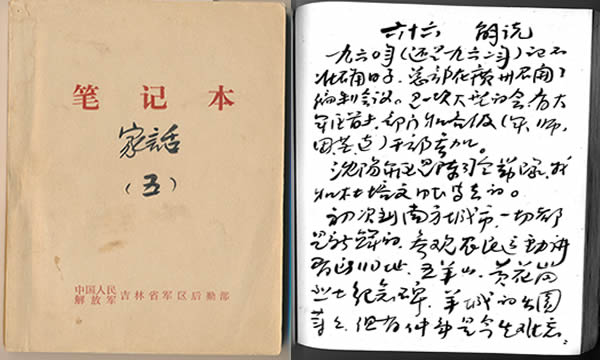 笔记本
家話
（五）
中国人民
解放军 吉林省军区后勤部
六十六
一九六〇年（还是一九六二年）记不
日子，总部在廣州召开了
编制会议。是一次大型的会，各大
军区首长、部门和各级（军、师、
团、营、连）干部参加。
沈阳军区是陈司令带队，我
和杜培文 去的。
初次到南方城市，一切都
是新鲜的，参观农民运動讲
习所旧址、五羊山、黄花岗
烈士纪念碑、羊城的公园
等々，但有件事是今生难忘。